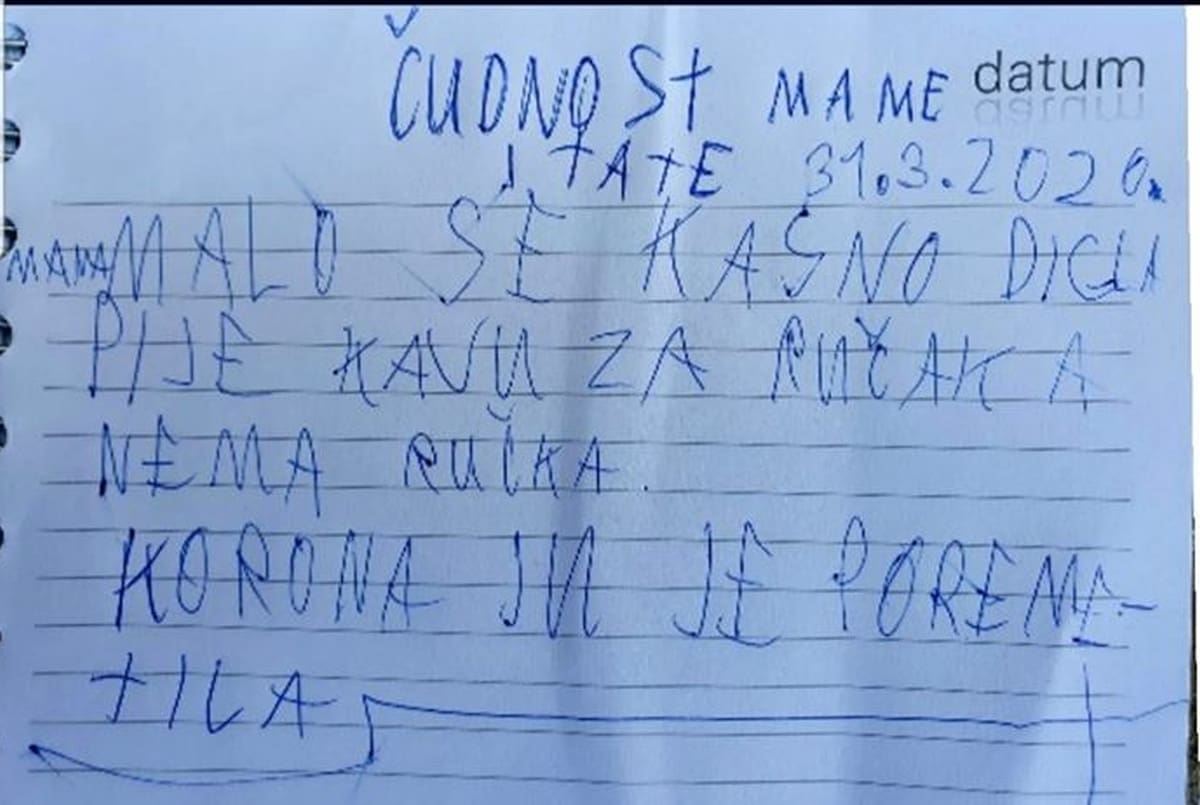 ČUDNOST MAME datum
I TATE 31.3.2020.
MAMA MALO SE KASNO DIGLA
PIJE KAVU ZA RUČAK A
NEMA RUČKA.
KORONA JU JE POREME-
TILA